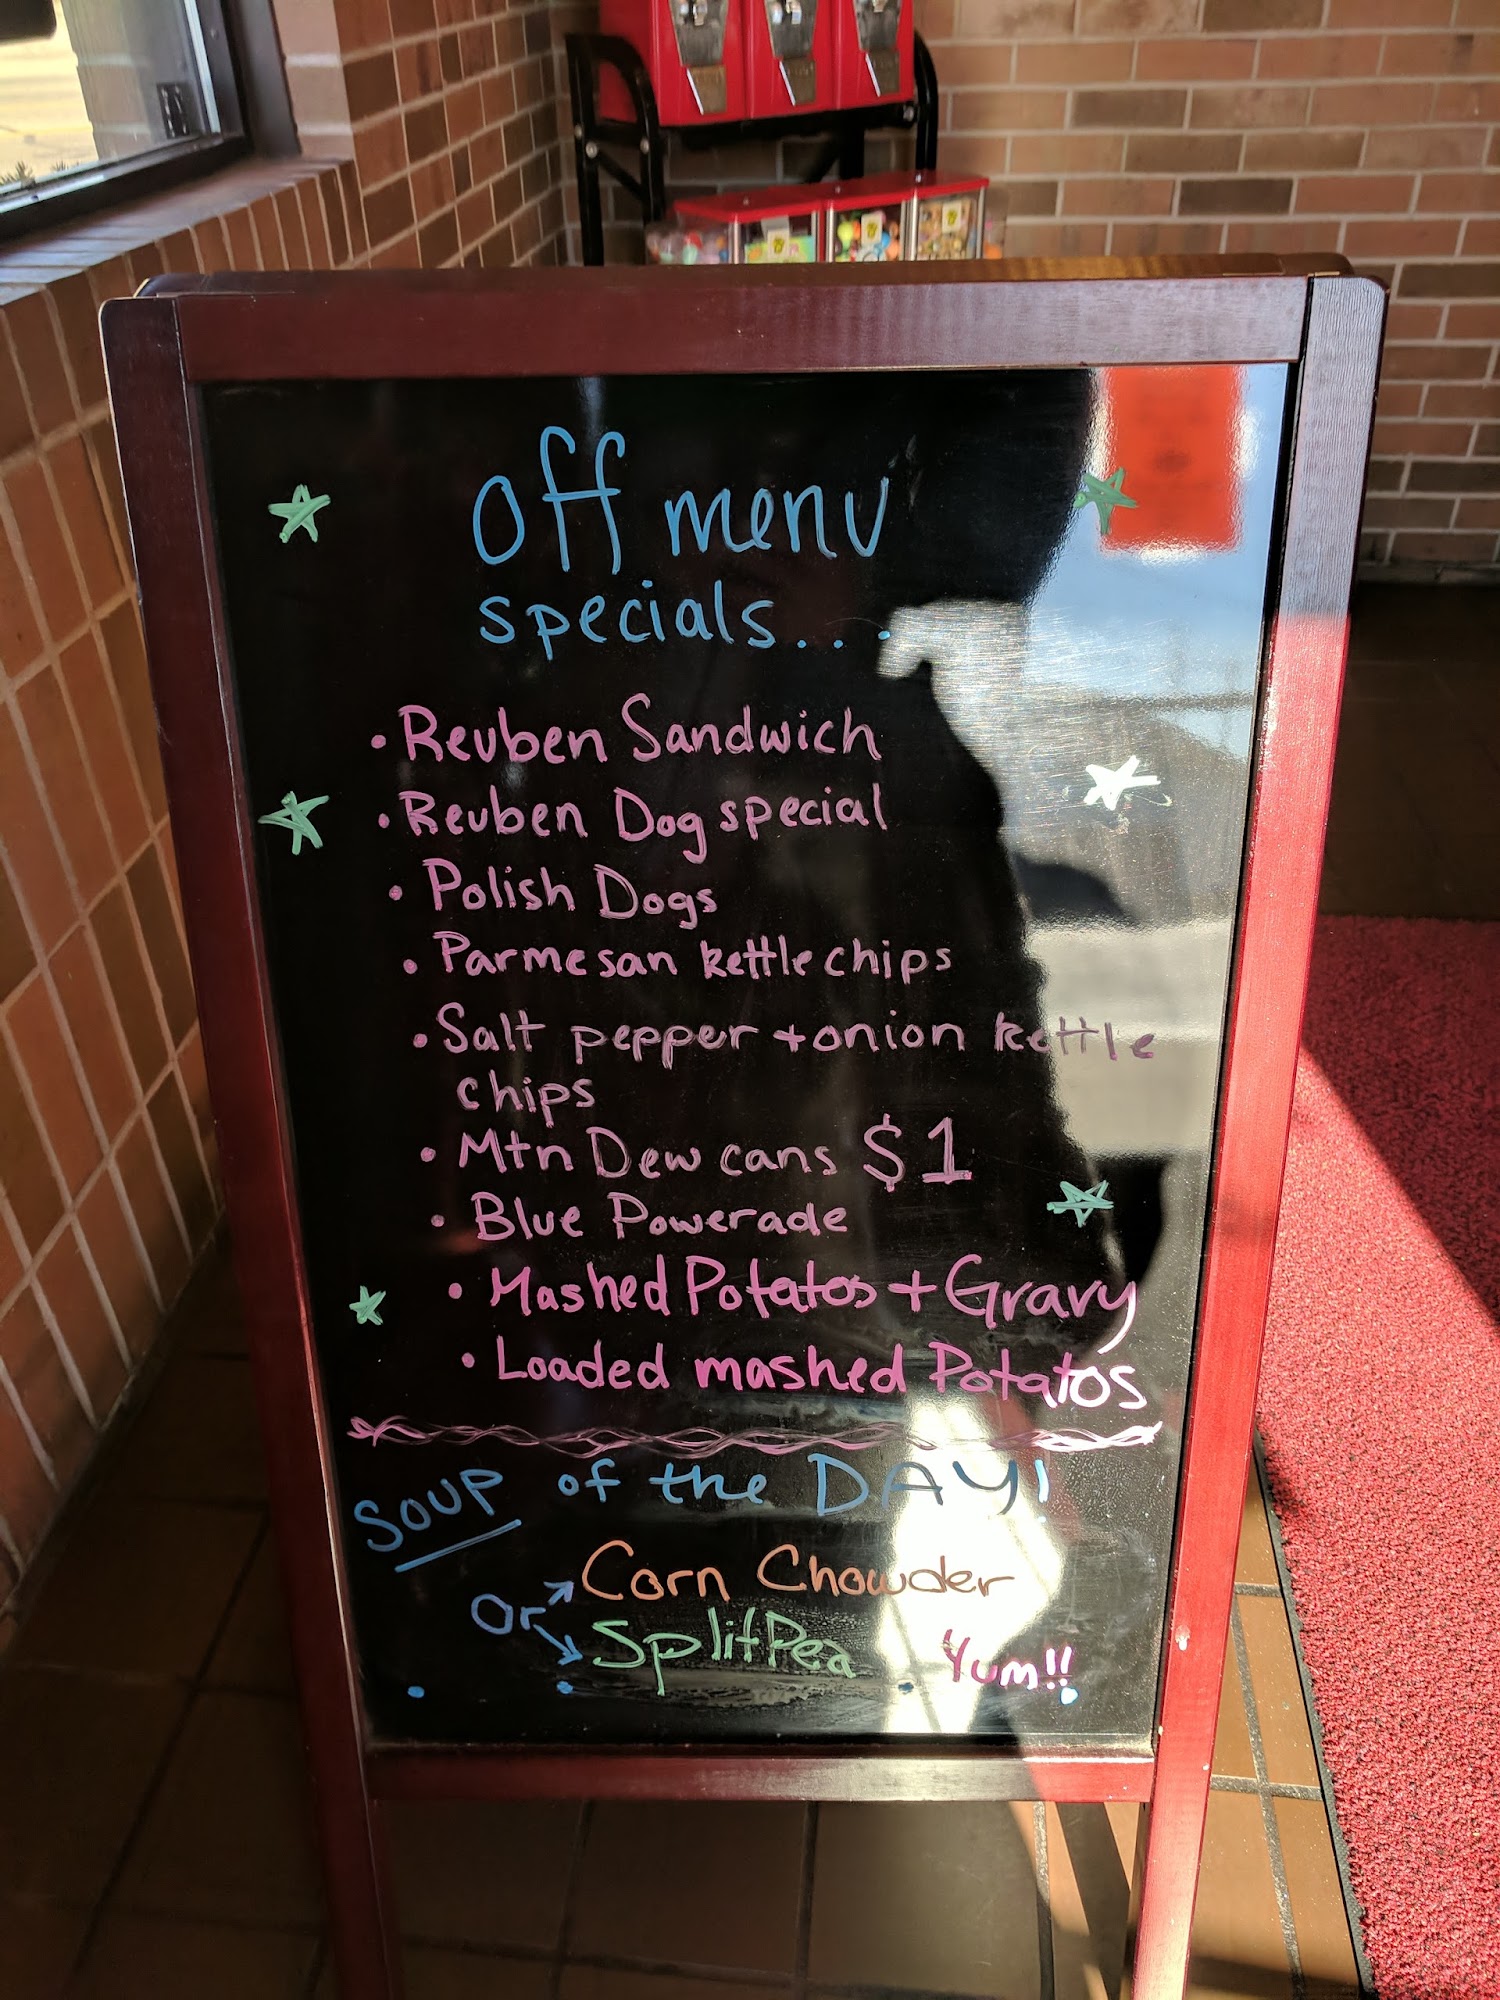 Off menu
specials...
• Reuben Sandwich
• Reuben Dog special
• Polish Dogs
• Parmesan kettle chips
• Salt pepper + onion kettle
chips
• Mtn Dew cans $1
• Blue Powerade
• Mashed Potatos + Gravy
• Loaded mashed Potatos
Soup of the DAY!
Corn Chowder
Or
Split Pea Yum!!